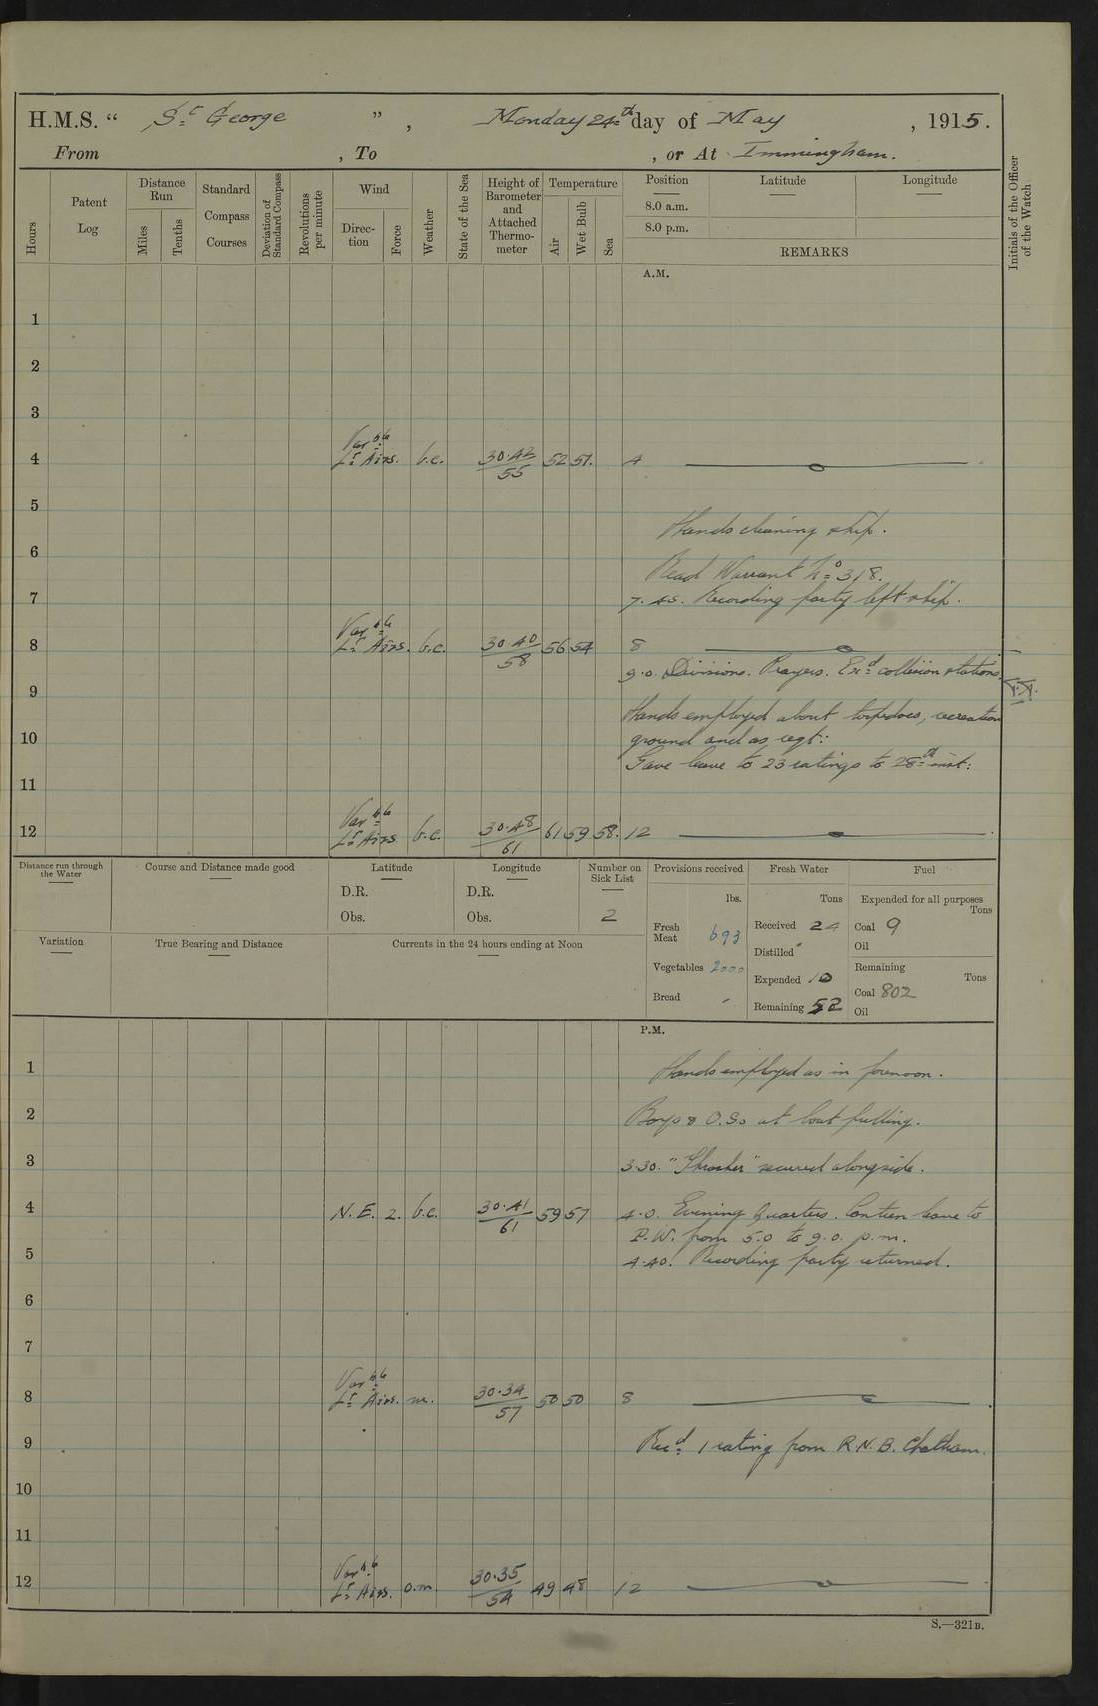 H.M.S. “ St George ” , Monday 24th day of May , 1915.
From , To , or At Immingham.
Hours
Patent Log
Distance Run
Miles
Tenths
Standard Compass Courses
Deviation of Standard Compass
Revolutions per minute
Wind
Direction
Force
Weather
State of the Sea
Height of Barometer and Attached Thermometer
Temperature
Air
Wet Bulb
Sea
Position Latitude Longitude
8.0 a.m.
8.0 p.m.
REMARKS
Initials of the Officer of the Watch
A.M.
1
2
3
4 Var ble Lt Airs. b.c. 30.43/55 52 51. 4
5
Hands cleaning ship.
6
Read Warrant No 318.
7
7.45. Recording party left ship.
8 Var ble Lt Airs. b.c. 30.40/58 56 54 8
9.0. Divisions. Prayers. Exd collision stations.
9
Hands employed about torpedoes, recreation
10 ground and as reqt:
Gave leave to 23 ratings to 28th inst:
11
12 Var ble Lt Airs b.c. 30.48/61 61 59 58. 12
Distance run through the Water
Course and Distance made good
Latitude
D.R.
Obs.
Longitude
D.R.
Obs.
Number on Sick List
2
Variation
True Bearing and Distance
Currents in the 24 hours ending at Noon
Provisions received
lbs.
Fresh Meat 693
Vegetables 2000
Bread
Fresh Water
Tons
Received 24
Distilled
Expended 10
Remaining 52
Fuel
Expended for all purposes
Tons
Coal 9
Oil
Remaining
Tons
Coal 802
Oil
P.M.
1 Hands employed as in forenoon.
2 Boys & O.Ss at boat pulling.
3 3.30. "Thrasher" secured alongside.
4 N.E. 2. b.c. 30.41/61 59 57 4.0. Evening Quarters. Canteen leave to
P.W. from 5.0 to 9.0. p.m.
5 4.40. Recording party returned.
6
7
8 Var ble Lt Airs. m. 30.34/57 50 50 8
9 Recd 1 rating from R.N.B. Chatham.
10
11
12 Var ble Lt Airs. o.m. 30.35/54 49 48 12
S.—321B.